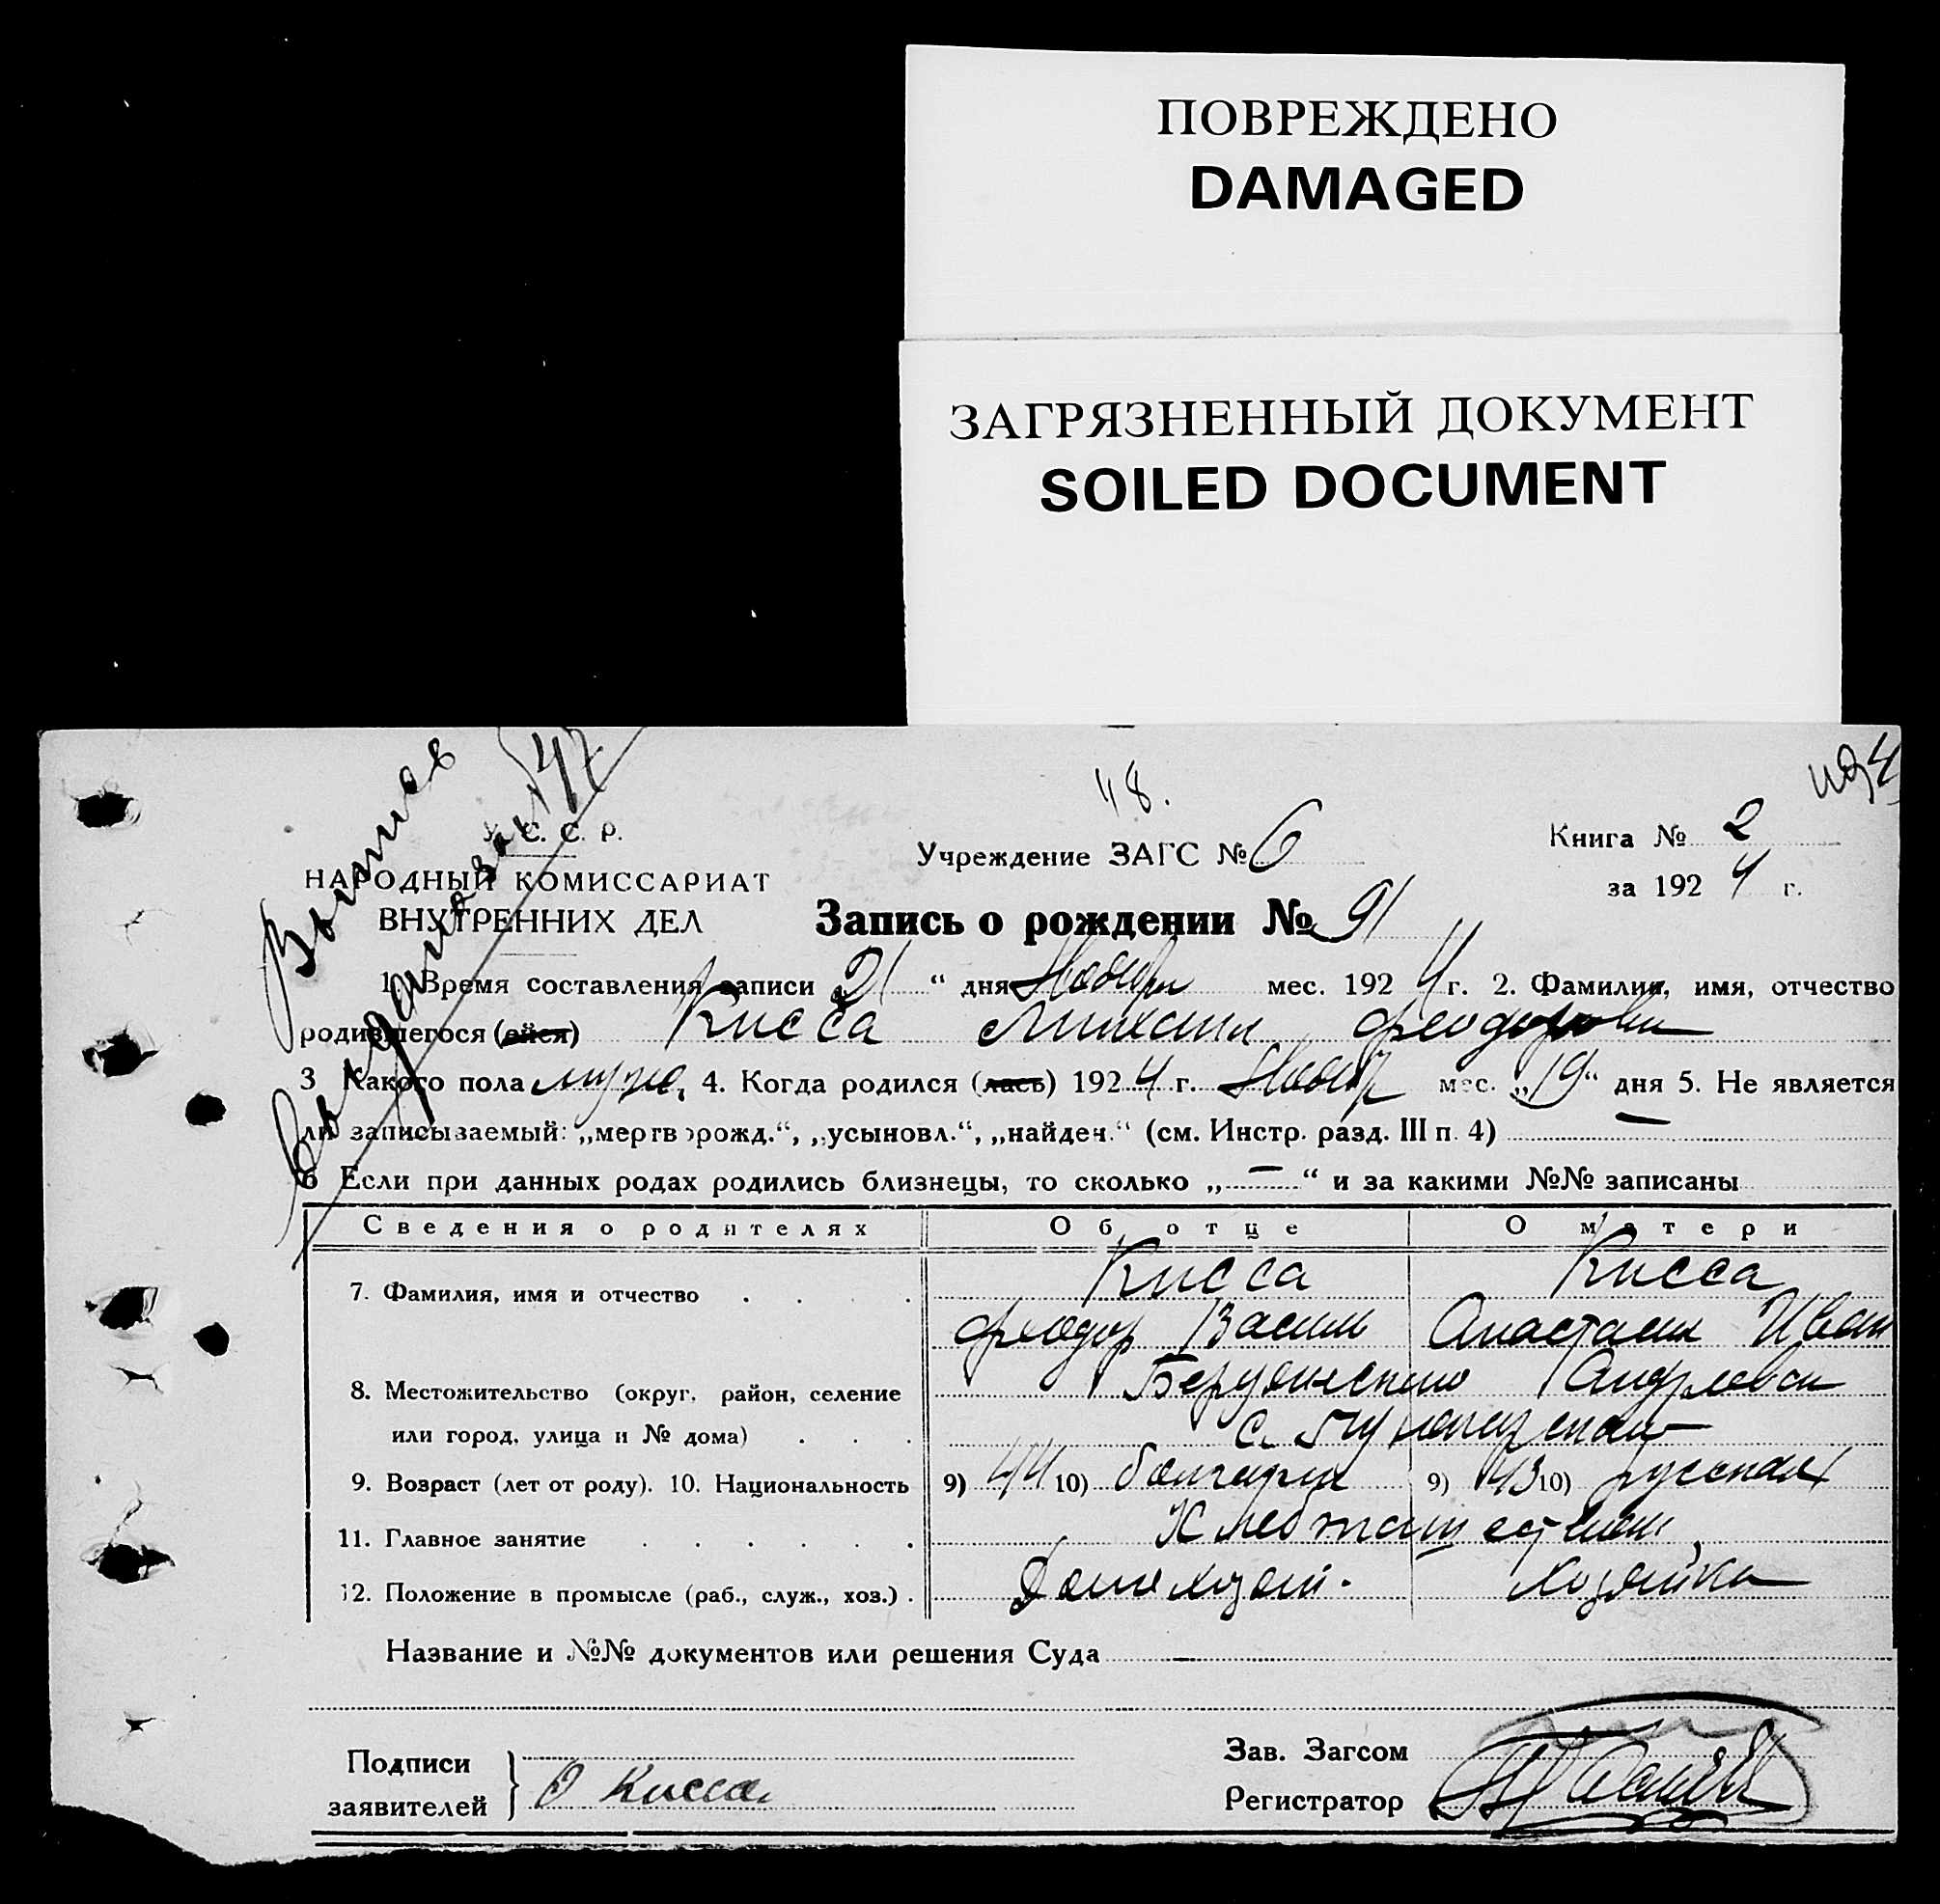 ПОВРЕЖДЕНО
DAMAGED
ЗАГРЯЗНЕННЫЙ ДОКУМЕНТ
SOILED DOCUMENT
Выпись
выдана
48.
С. С. Р.
Учреждение ЗАГС № 6
Книга № 2
НАРОДНЫЙ КОМИССАРИАТ
ВНУТРЕННИХ ДЕЛ
за 1924 г.
Запись о рождении № 91
1. Время составления записи „21“ дня Ноября мес. 1924 г. 2. Фамилия, имя, отчество
родившегося (ейся) Кисса Михаил Феодорови
3 Какого пола муж. 4. Когда родился (лась) 1924 г. Нояб мес. „19“ дня 5. Не является
ли записываемый: „мертворожд.“, „усыновл.“, „найден.“ (см. Инстр. разд. III п. 4) —
6 Если при данных родах родились близнецы, то сколько „—“ и за какими №№ записаны
Сведения о родителях Об отце О матери
7. Фамилия, имя и отчество Кисса Кисса
Феодор Васил Анастасия Иван
8. Местожительство (округ, район, селение Бердянского Андреевск
или город, улица и № дома) с.
9. Возраст (лет от роду). 10. Национальность 9) 44 10) болгарин 9) 43 10) русская
11. Главное занятие Хлебопашество
12. Положение в промысле (раб., служ., хоз.) Домохозяин. хозяйка
Название и №№ документов или решения Суда —
Подписи
заявителей
Кисса
Зав. Загсом
Регистратор